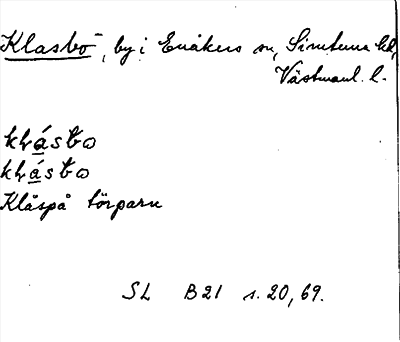 Klasbo, by i Enåkers sn, Simtuna hd,
Västmanl. l.
klásbo
klásbo
Klåspå törparn
SL B21 s. 20, 69.